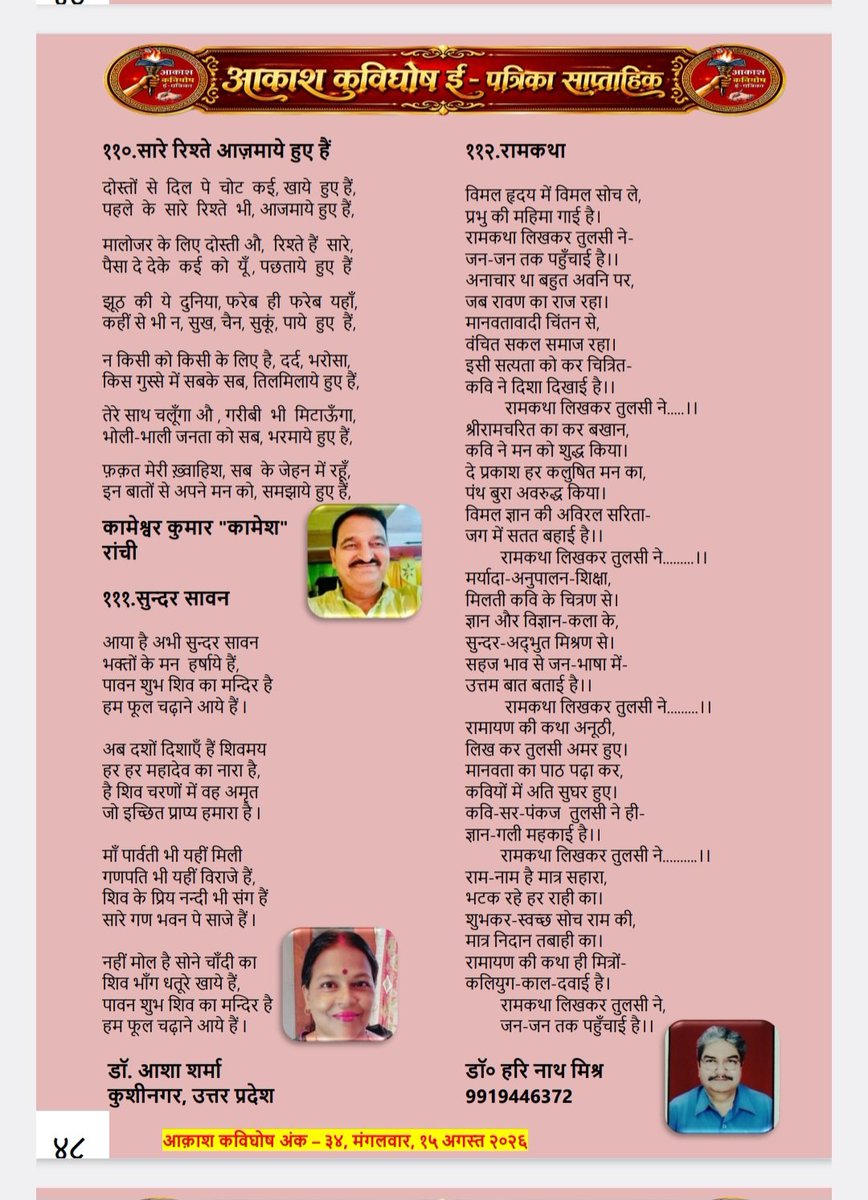 आकाश कविघोष ई-पत्रिका
आकाश कविघोष ई - पत्रिका साप्ताहिक
आकाश कविघोष ई-पत्रिका
११०.सारे रिश्ते आज़माये हुए हैं
दोस्तों से दिल पे चोट कई, खाये हुए हैं,
पहले के सारे रिश्ते भी, आजमाये हुए हैं,
मालोजर के लिए दोस्ती औ, रिश्ते हैं सारे,
पैसा दे देके कई को यूँ , पछताये हुए हैं
झूठ की ये दुनिया, फरेब ही फरेब यहाँ,
कहीं से भी न, सुख, चैन, सुकूं, पाये हुए हैं,
न किसी को किसी के लिए है, दर्द, भरोसा,
किस गुस्से में सबके सब, तिलमिलाये हुए हैं,
तेरे साथ चलूँगा औ , गरीबी भी मिटाऊँगा,
भोली-भाली जनता को सब, भरमाये हुए हैं,
फ़क़त मेरी ख़्वाहिश, सब के जेहन में रहूँ,
इन बातों से अपने मन को, समझाये हुए हैं,
कामेश्वर कुमार "कामेश"
रांची
१११.सुन्दर सावन
आया है अभी सुन्दर सावन
भक्तों के मन हर्षाये हैं,
पावन शुभ शिव का मन्दिर है
हम फूल चढ़ाने आये हैं ।
अब दशों दिशाएँ हैं शिवमय
हर हर महादेव का नारा है,
है शिव चरणों में वह अमृत
जो इच्छित प्राप्य हमारा है ।
माँ पार्वती भी यहीं मिली
गणपति भी यहीं विराजे हैं,
शिव के प्रिय नन्दी भी संग हैं
सारे गण भवन पे साजे हैं ।
नहीं मोल है सोने चाँदी का
शिव भाँग धतूरे खाये हैं,
पावन शुभ शिव का मन्दिर है
हम फूल चढ़ाने आये हैं ।
डॉ. आशा शर्मा
कुशीनगर, उत्तर प्रदेश
११२.रामकथा
विमल हृदय में विमल सोच ले,
प्रभु की महिमा गाई है।
रामकथा लिखकर तुलसी ने-
जन-जन तक पहुँचाई है।।
अनाचार था बहुत अवनि पर,
जब रावण का राज रहा।
मानवतावादी चिंतन से,
वंचित सकल समाज रहा।
इसी सत्यता को कर चित्रित-
कवि ने दिशा दिखाई है।।
रामकथा लिखकर तुलसी ने.....।।
श्रीरामचरित का कर बखान,
कवि ने मन को शुद्ध किया।
दे प्रकाश हर कलुषित मन का,
पंथ बुरा अवरुद्ध किया।
विमल ज्ञान की अविरल सरिता-
जग में सतत बहाई है।।
रामकथा लिखकर तुलसी ने.........।।
मर्यादा-अनुपालन-शिक्षा,
मिलती कवि के चित्रण से।
ज्ञान और विज्ञान-कला के,
सुन्दर-अद्भुत मिश्रण से।
सहज भाव से जन-भाषा में-
उत्तम बात बताई है।।
रामकथा लिखकर तुलसी ने.........।।
रामायण की कथा अनूठी,
लिख कर तुलसी अमर हुए।
मानवता का पाठ पढ़ा कर,
कवियों में अति सुघर हुए।
कवि-सर-पंकज तुलसी ने ही-
ज्ञान-गली महकाई है।।
रामकथा लिखकर तुलसी ने..........।।
राम-नाम है मात्र सहारा,
भटक रहे हर राही का।
शुभकर-स्वच्छ सोच राम की,
मात्र निदान तबाही का।
रामायण की कथा ही मित्रों-
कलियुग-काल-दवाई है।
रामकथा लिखकर तुलसी ने,
जन-जन तक पहुँचाई है।।
डॉ० हरि नाथ मिश्र
9919446372
४८
आक़ाश कविघोष अंक – ३४, मंगलवार, १५ अगस्त २०२६